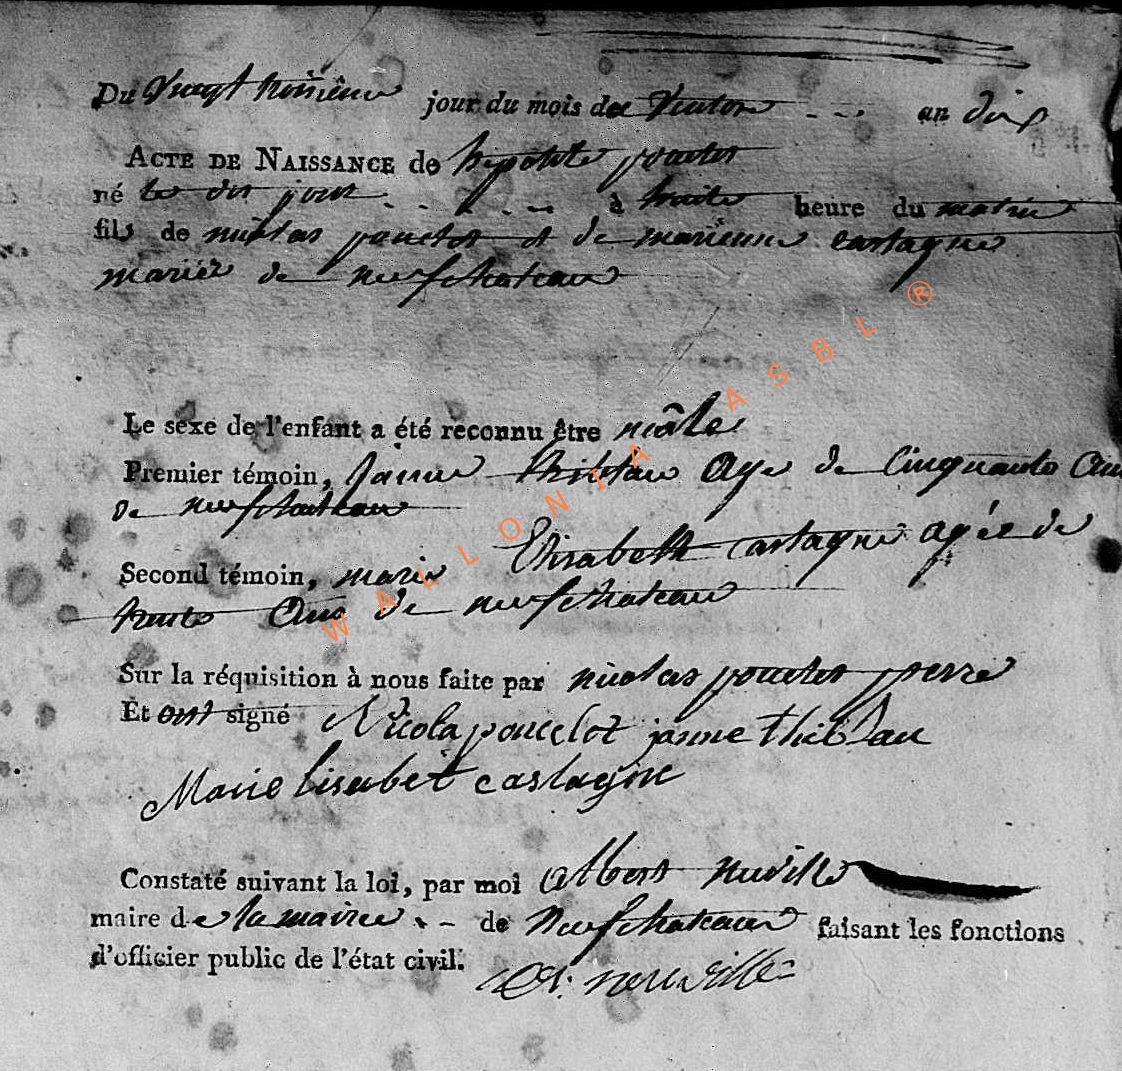 Du Vingt troisième jour du mois de Ventose - - - an dix
ACTE DE NAISSANCE de hipolite
né le dis jour - - - - à huite heure du matin
fils de nicolas et de castagne
mariez de neufchateau
Le sexe de l'enfant a été reconnu être mâle
Premier témoin, thiblau age de Cinquante Ans
de neufchateau
Second témoin, marie Elisabeth Castagne agée de
trente Ans de neufchateau
Sur la réquisition à nous faite par nicolas perre
Et ont signé Nicola poncelot janne thiblau
Marie lisabet castagne
Constaté suivant la loi, par moi Albert
maire de la mairie - - de Neufchateau faisant les fonctions
d'officier public de l'état civil.
WALLONIA ASBL ®